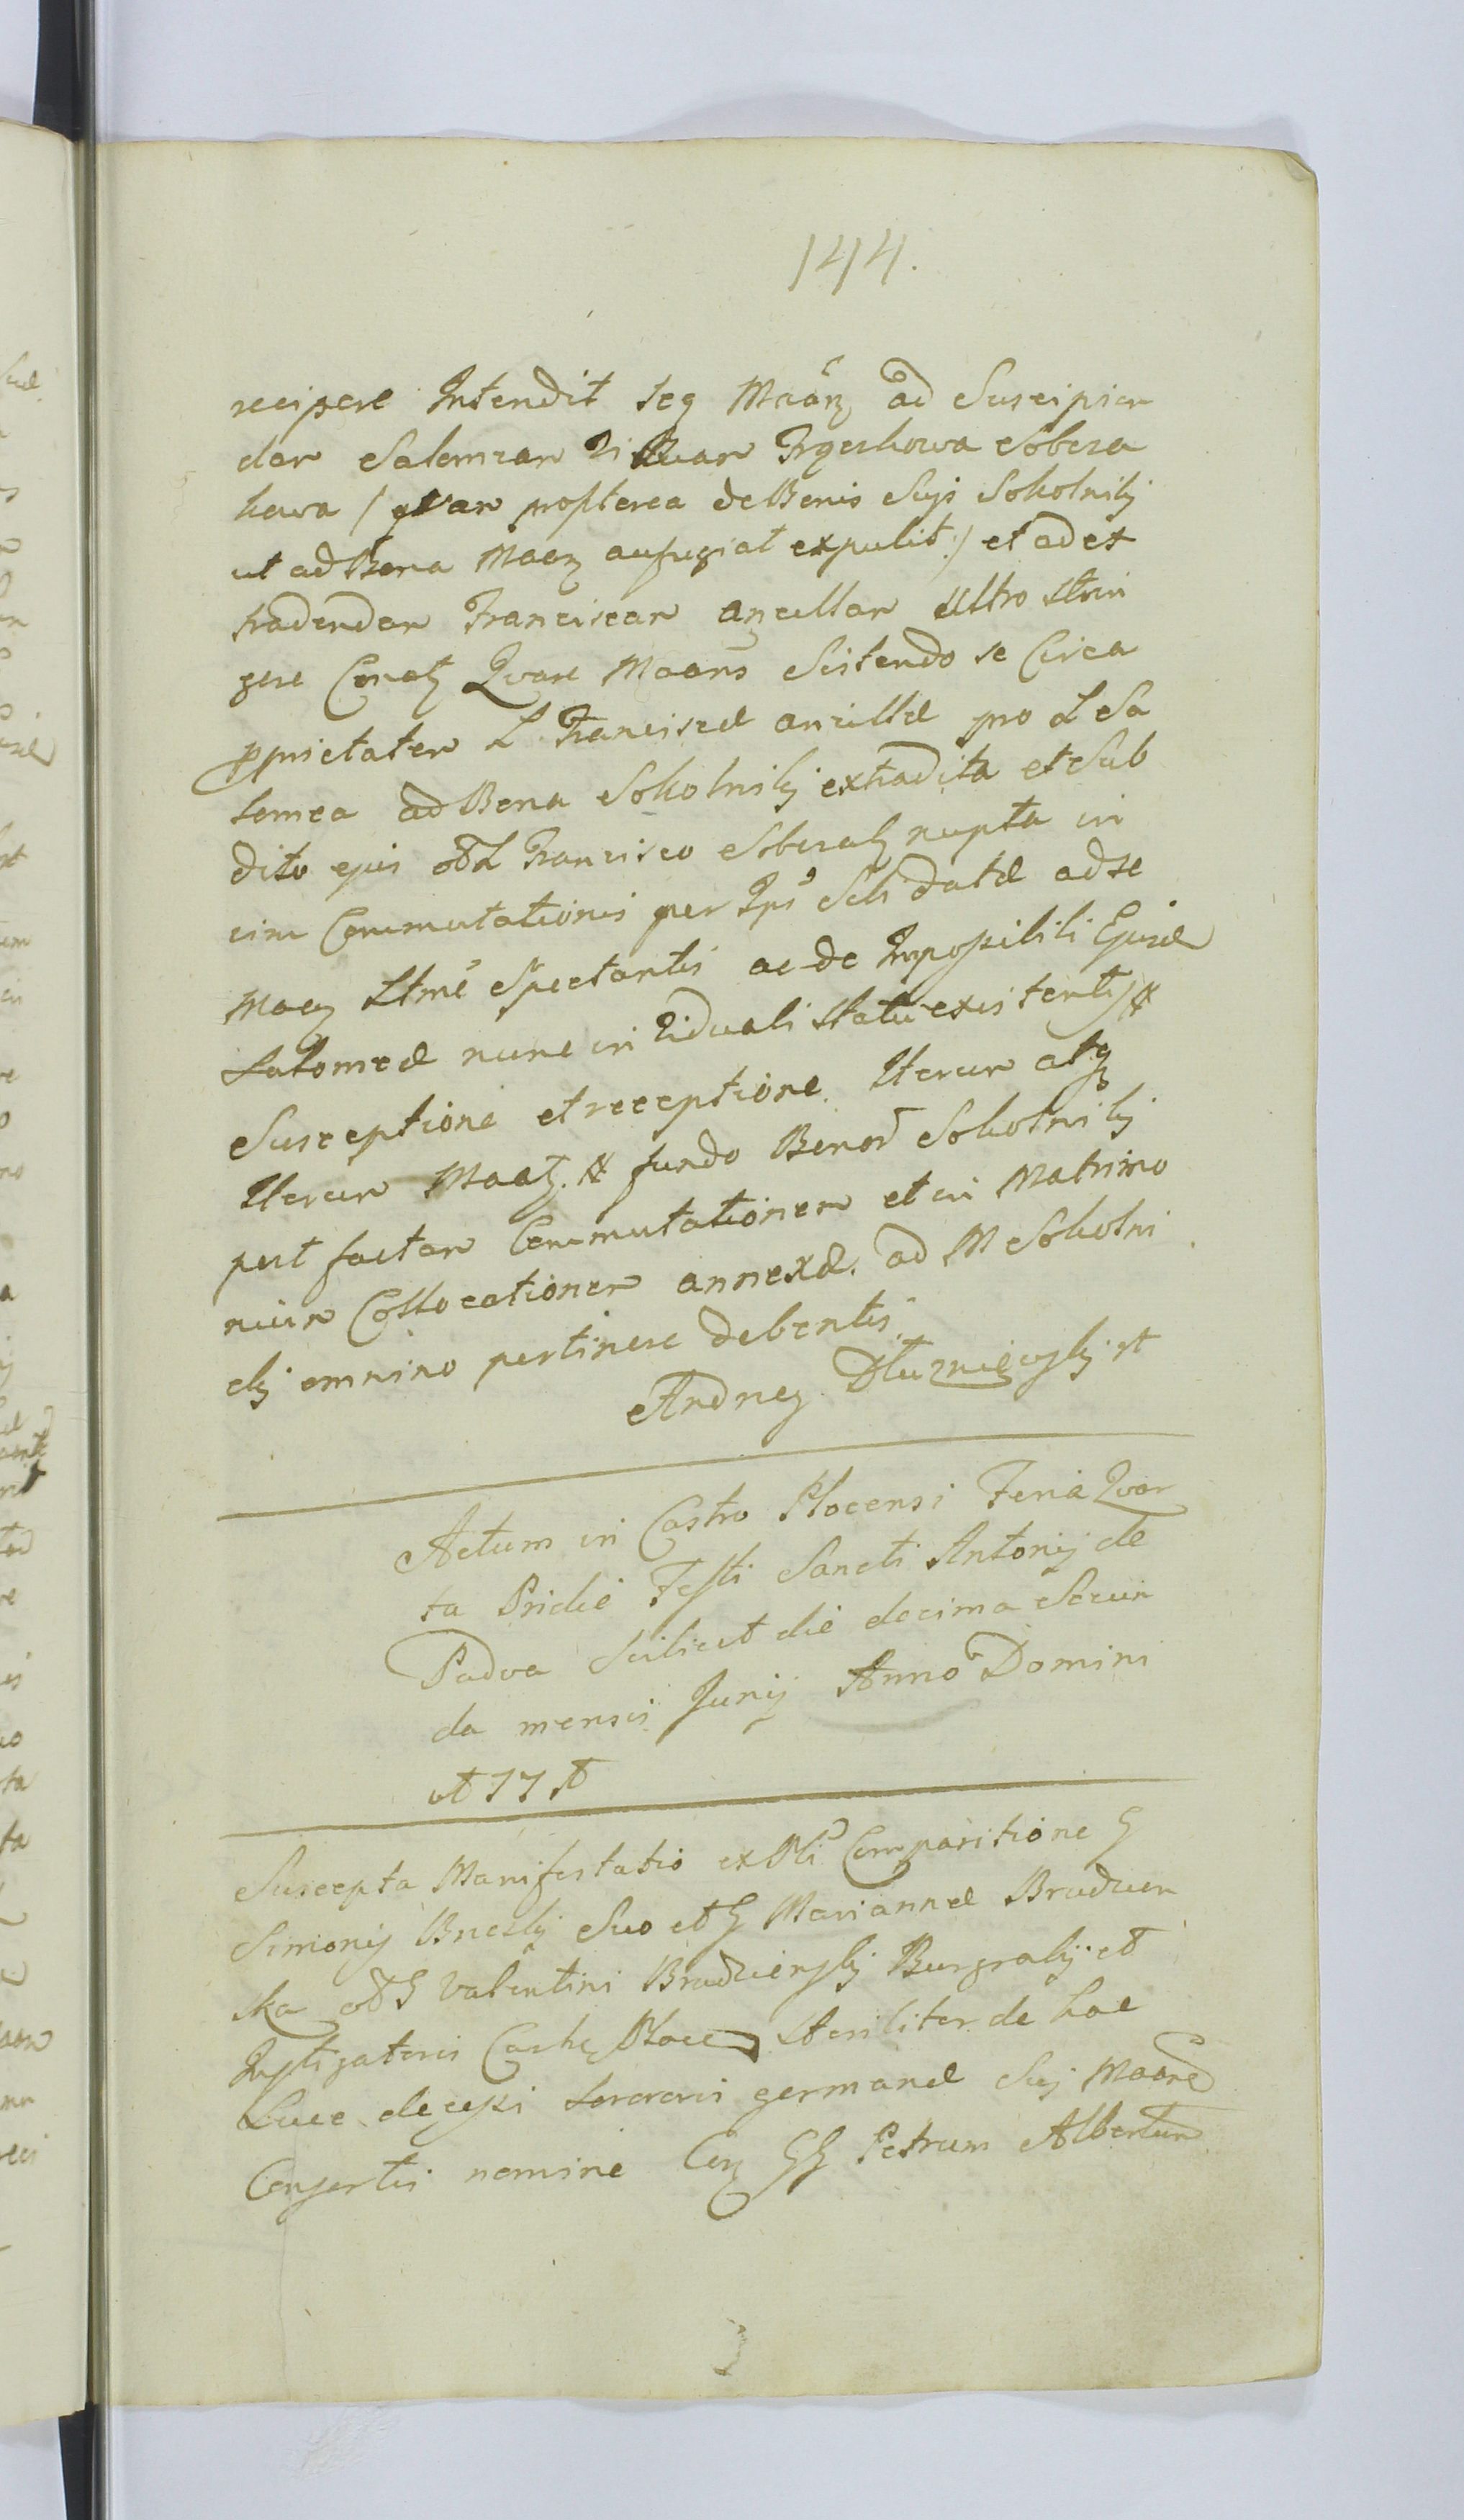 144.
recipere Intendit seq Maan ad Suscipien
dam Salomean Viduam Grzeskowa Sobcza
kowa (quam propterea de Bonis Sujs Sokolnikj
ut ad Bona Maan aufugiat expulit:) et ad ex
tradendam Franciscam ancillam Ultro strin
gere Conat Quare Maans Sistendo se Circa
pprietatem L Franciscæ ancillæ pro L Sa
lomea ad Bona Sokolnikj extradita et Sub
dito ejus L Francisco Sobczak nupta in
vim Commutationis per Ips Seti datæ ad se
Maan Ltme Spectantis ac de Impossibili Ejusd
Salomeæ nunc in Viduali statu existentis
Susceptione et receptione. Iterum atq
Iterum Maat. fundo Bonor Sokolnikj
post factam Commutationem et in Matrimo
nium Collocationem annexæ. ad M Sokolni
ckj omnino pertinere debentis.
Andrzej Dłuzniewskj
Actum in Castro Plocensi Feria Quar
ta Pridie Festi Sancti Antonij de
Padva scilicet die decima Secun
da mensis Junij Anno Domini
Suscepta Manifestatio ex Comparitione G
Simonij Suo et G Mariannæ Brudzien
ska G Valentini Brudzienskj Burgrabij et
Instigatoris Castr Plocen steriliter de hac
Luce decessi sororis germanæ Suj Maane
Consortis nomine Con GG Petrum Albertum